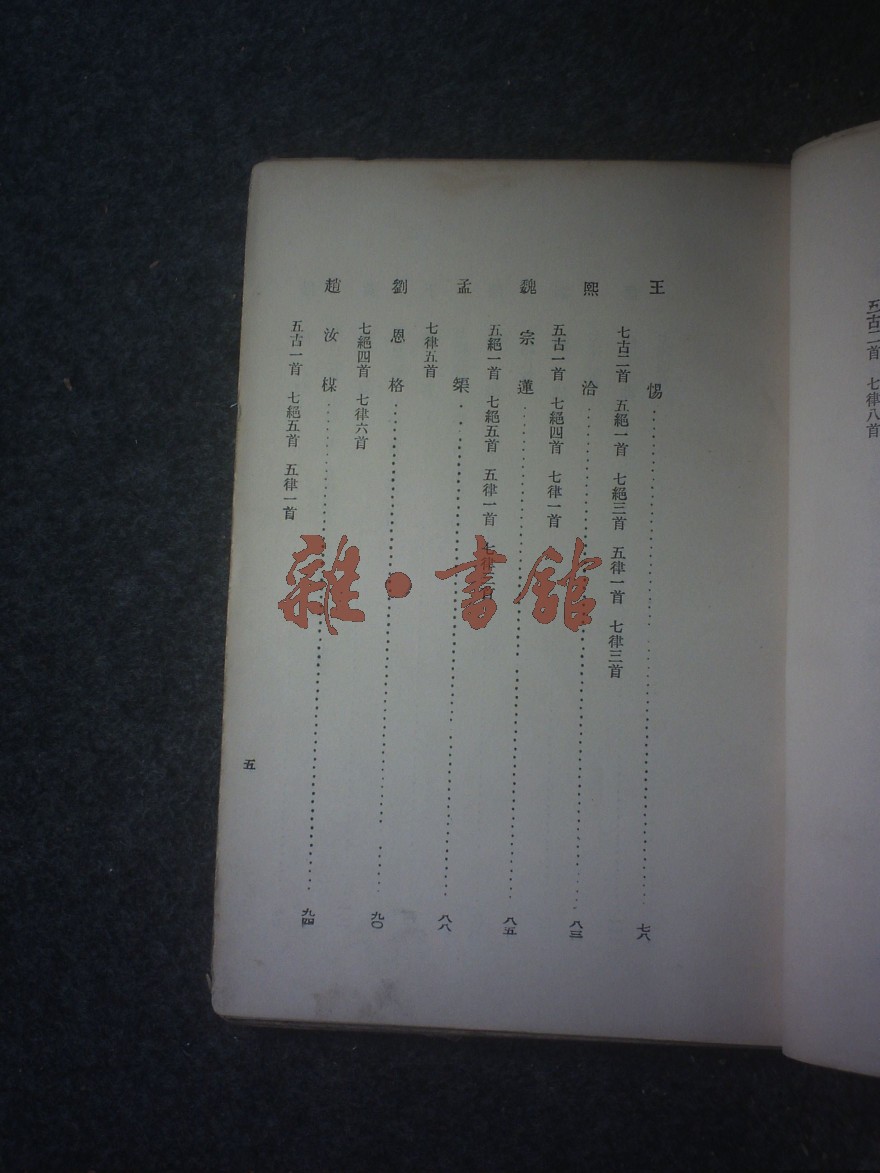 五古二首 七律八首
王惕……七八
七古二首 五絕一首 七絕三首 五律一首 七律三首
熙洽……八三
五古一首 七絕四首 七律一首
魏宗蓮……八五
五絕一首 七絕五首 五律一首 七律三首
孟榘……八八
七律五首
劉恩格……九〇
七絕四首 七律六首
趙汝楳……九四
五古一首 七絕五首 五律一首
五
雜·書館